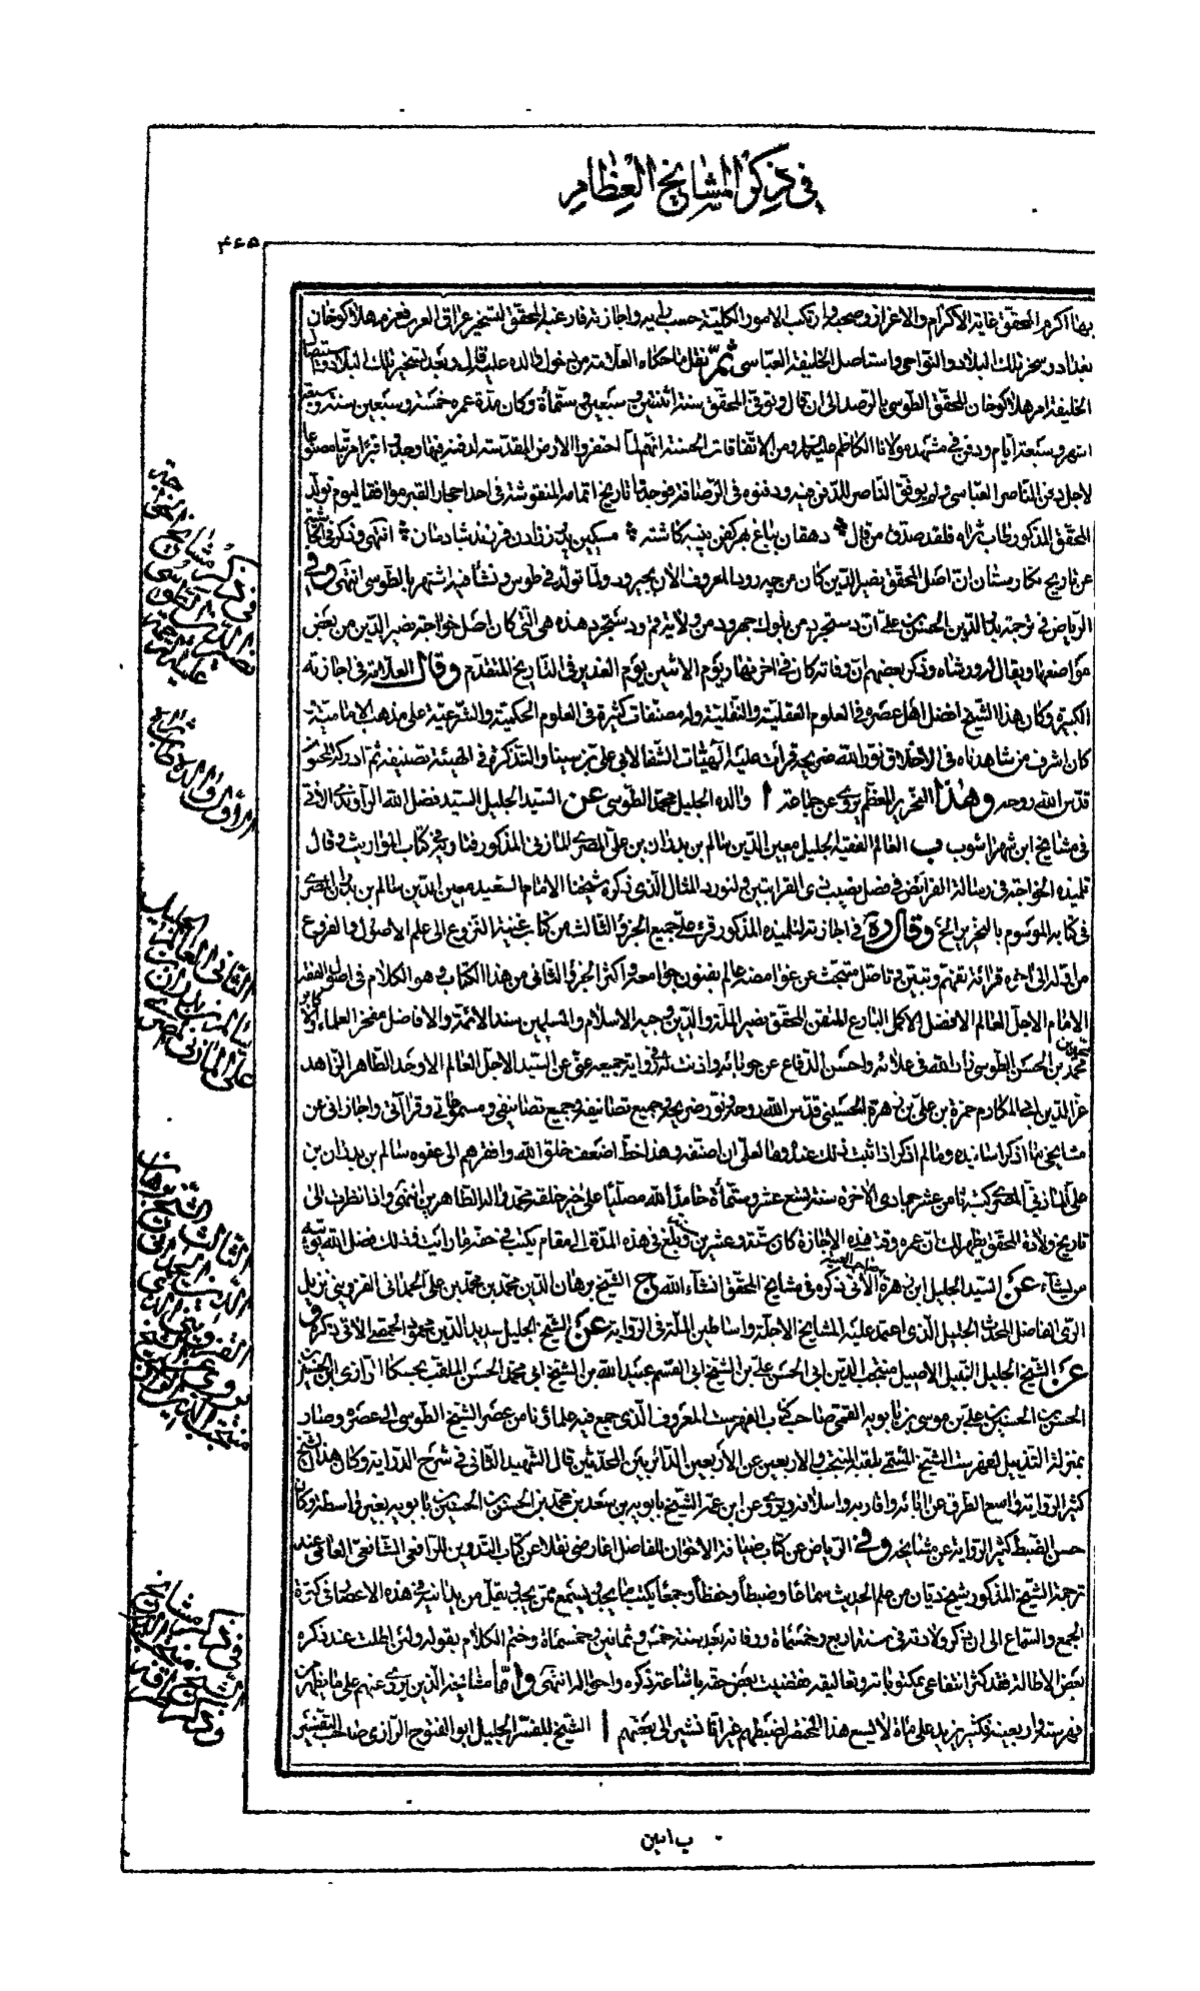 في ذكر المشايخ العظام
٤٦٥
بها اكرم المحقق غاية الاكرام والاعزاز وصحبه وارتكب الامور الكلية حسب رايه واجازته فارغبه المحقق لتسخير عراق العرب فعزم هلاكوخان
بغداد وسخر تلك البلاد والنواحي واستاصل الخليفة العباسي ثم نقل ما حكاه العلامة من دخول والده عليه قال وبعد تسخير تلك البلاد
الخليفة امر هلاكوخان المحقق الطوسي بالرصد الى ان قال وتوفي المحقق سنة اثنتين وسبعين وستمأة وكان مدة عمره خمسة وسبعين سنة وسبعة
اشهر وسبعة ايام ودفن في مشهد مولانا الكاظم عليه السلام ومن الاتفاقات الحسنة انهم لما احتفروا الارض المقدسة لدفنه فيها وجدوا قبرا مرتبا مصنوعا
لاجل دفن الناصر العباسي ولم يوفق الناصر للدفن فيه ودفنوه في الرصافة فوجدوا تاريخ اتمامه المنقوشة في احد احجار القبر موافقا ليوم تولد
المحقق المذكور طاب ثراه فلقد صدق من قال دهقان بباغ بهر كفن پنبه كاشته مسكين پدر ز زادن فرزند شادمان انتهى وذكر في
عن تاريخ نگارستان ان اصل المحقق نصير الدين كان من چه رود المعروف الآن بجيرود ولما تولد في طوس ونشأ فيه اشتهر بالطوسي انتهى وفي
الرياض في ترجمة بدر الدين الحسن بن علي ان دستجرد من بلوك جهرود من ولاية قم ودستجرد هذه هي التي كان اصل خواجه نصير الدين من بعض
مواضعها ويقال له ورشاه وذكر بعضهم ان وفاته كان في اخر نهار يوم الاثنين يوم الغدير في التاريخ المتقدم وقال العلامة في اجازته
الكبيرة وكان هذا الشيخ افضل اهل عصره في العلوم العقلية والنقلية وله مصنفات كثيرة في العلوم الحكمية والشرعية على مذهب الامامية
كان اشرف من شاهدناه في الاخلاق نور الله ضريحه قرات عليه الهيات الشفا لابي علي بن سينا والتذكرة في الهيئة تصنيفه ثم ادركه المحتوم
قدس الله روحه وهذا النحرير المعظم يروي عن جماعة ا والده الجليل محمد الطوسي عن السيد الجليل السيد فضل الله الراوندي الآتي
في مشايخ ابن شهراشوب ب العالم الفقيه الجليل معين الدين سالم بن بدران بن علي المصري المازني المذكور فتاويه في كتاب المواريث وقال
تلميذه الخواجه في رسالة الفرائض في فصل نصيب ذي القرابتين ولنورد المثال الذي ذكره شيخنا الامام السعيد معين الدين سالم بن بدران المصري
في كتابه الموسوم بالتحرير الخ وقال ره في اجازته لتلميذه المذكور قرء علي جميع الجزؤ الثالث من كتاب غنية النزوع الى علم الاصول والفروع
من اوله الى اخره قرائة تفهم وتبين وتامل مستبحث عن غوامضه عالم بفنون جوامعه واكثر الجزؤ الثاني من هذا الكتاب وهو الكلام في اصول الفقه
الامام الاجل العالم الافضل الاكمل البارع المتقن المحقق نصير الملة والدين وجيه الاسلام والمسلمين سند الائمة والافاضل مفخر العلماء والاكابر
محمد بن محمد بن الحسن الطوسي زاد الله في علائه واحسن الدفاع عن حوبائه واذنت له في رواية جميعه عني عن السيد الاجل العالم الاوحد الطاهر الزاهد
عز الدين ابي المكارم حمزة بن علي بن زهرة الحسيني قدس الله روحه ونور ضريحه وجميع تصانيفه وجميع تصانيفي ومسموعاتي وقراآتي واجازاتي عن
مشايخي ما اذكر اسانيده وما لم اذكر اذا ثبت ذلك عنده وما لعلي ان اصنفه وهذا خط اضعف خلق الله وافقرهم الى عفوه سالم بن بدران بن
علي المازني المصري كتبه ثامن عشر جمادى الآخرة سنة تسع عشر وستمأة حامدا لله مصليا على خير خلقه محمد واله الطاهرين انتهى واذا نظرت الى
تاريخ ولادة المحقق يظهر لك ان عمره وقت هذه الاجازة كان ستة وعشرين وبلغ في هذه المدة الى مقام يكتب في حقه ما رايت وذلك فضل الله يؤتيه
من يشاء عن السيد الجليل ابن زهرة صاحب الغنية الآتي ذكره في مشايخ المحقق انشاء الله ج الشيخ برهان الدين محمد بن محمد بن علي الحمداني القزويني نزيل
الري الفاضل المحدث الجليل الذي اعتمد عليه المشايخ الاجلة واساطين الملة في الرواية عن الشيخ الجليل سديد الدين محمود الحمصي الآتي ذكره و
عن الشيخ الجليل النبيل الاصيل منتجب الدين ابي الحسن علي بن الشيخ ابي القسم عبيد الله بن الشيخ ابي محمد الحسن الملقب بحسكا الرازي ابن الحسين بن
الحسن بن الحسين بن علي بن موسى بن بابويه القمي صاحب كتاب الفهرست المعروف الذي جمع فيه علمائنا من عصر الشيخ الطوسي الى عصره وصار
بمنزلة التذييل لفهرست الشيخ المسمى بلقبه المنتجب والاربعين عن الاربعين الدائر بين المحدثين قال الشهيد الثاني في شرح الدراية وكان هذا الشيخ
كثير الرواية واسع الطرق عن ابائه واقاربه واسلافه ويروي عن ابن عمه الشيخ بابويه بن سعد بن محمد بن الحسن بن الحسين بن بابويه بغير واسطة وكان
حسن الضبط كثير الرواية عن مشايخه وفي الرياض عن كتاب ضيافة الاخوان للفاضل اغا رضي نقلا عن كتاب التدوين للرافعي الشافعي العامي عند
ترجمة الشيخ المذكور شيخ ريان من علم الحديث سماعا وضبطا وحفظا وجمعا يكتب ما يجد ويسمع ممن يجد ويقل من يدانيه في هذه الاعصار في كثرة
الجمع والسماع الى ان ذكر ولادته في سنة اربع وخمسمأة ووفاته بعد سنة خمس وثمانين وخمسمأة وختم الكلام بقوله ولئن اطلت عند ذكره
بعض الاطالة فقد كثر انتفاعي بمكتوباته وتعاليقه فقضيت بعض حقه باشاعة ذكره واحواله انتهى واما مشايخه الذين يروي عنهم على ما يظهر من
فهرسته واربعينه فكثير يزيد على مأة لا يسع هذا المختصر لضبطهم غير انا نشير الى بعضهم ا الشيخ المفسر الجليل ابو الفتوح الرازي صاحب التفسير
في ذكر مشايخ
نصير الدين الطوسي
عليه الرحمة
الاول والده طاب ثراه
الثاني العالم الجليل
سالم بن بدران بن
علي المازني المصري
الثالث الشيخ برهان
الدين الحمداني
القزويني الذي
يروي عن الشيخ
منتجب الدين الرازي
في ذكر مشايخ
الشيخ منتجب الدين